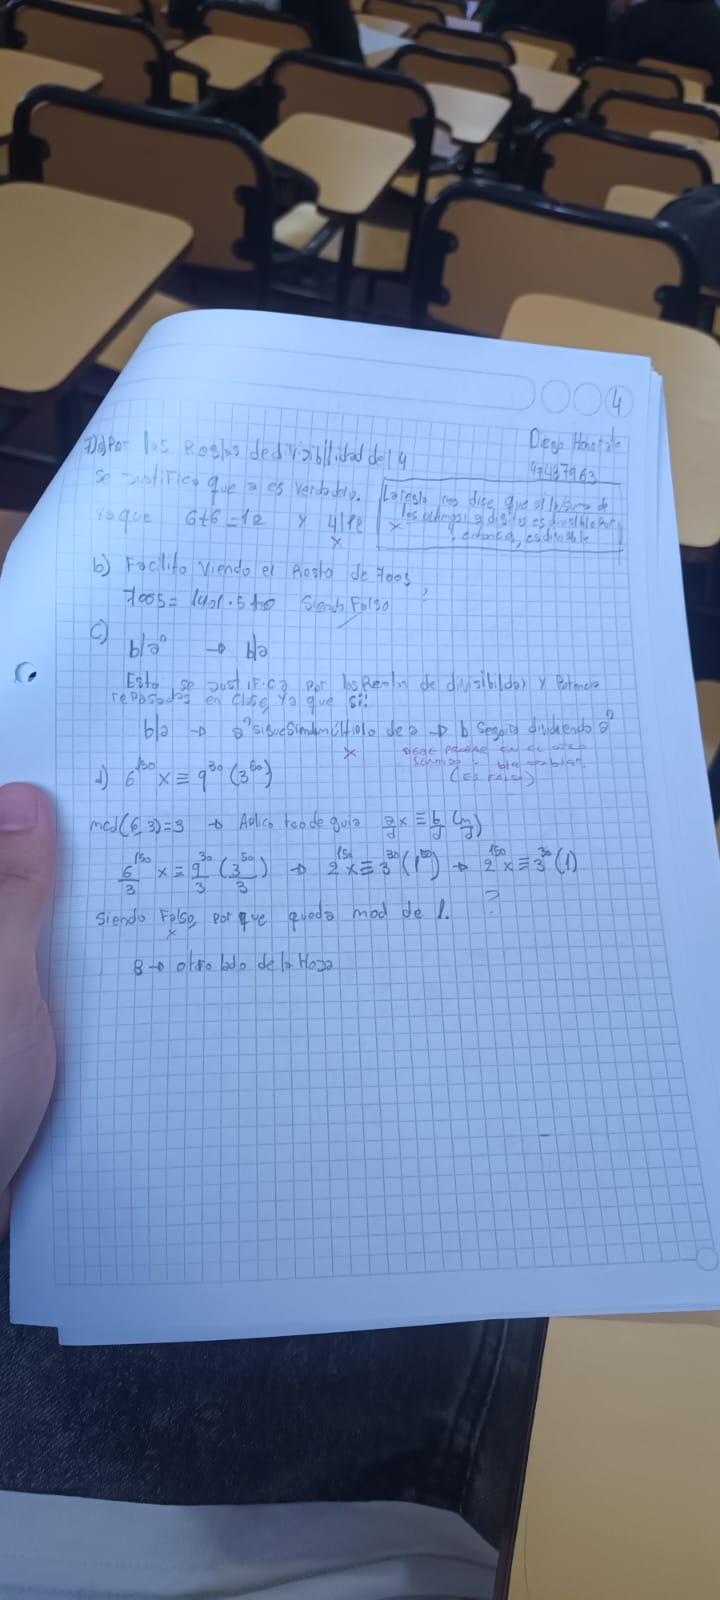 4
Diego
47487963
7) a) Por las Reglas de divisibilidad del 4
se justifica que a es verdadero.
ya que 6+6=12 y 4|12
x
La regla nos dice que si la suma de
los ultimos 2 digitos es divisible por
x entonces, es divisible
b) Facilito viendo el Resto de 7005,
7005 = 1401.5+0 Siendo Falso
c)
b|aⁿ → b|a
Esto se justifica por las Reglas de divisibilidad y Potencia
repasadas en clase, ya que si!!
b|a → aⁿ sigue siendo múltiplo de a → b seguira dividiendo aⁿ
x
en el otro
sentido
(Es Falso)
d) 6¹⁵⁰x ≡ 9³⁰ (3⁵⁰)
mcd(6,3)=3 → Aplico de guia a/d x ≡ b/d (m/d)
6¹⁵⁰/3 x ≡ 9³⁰/3 (3⁵⁰/3) → 2¹⁵⁰x ≡ 3³⁰ (1⁵⁰) → 2¹⁵⁰x ≡ 3³⁰ (1)
Siendo Falso, porque queda mod de 1. ?
x
8 → otro lado de la Hoja